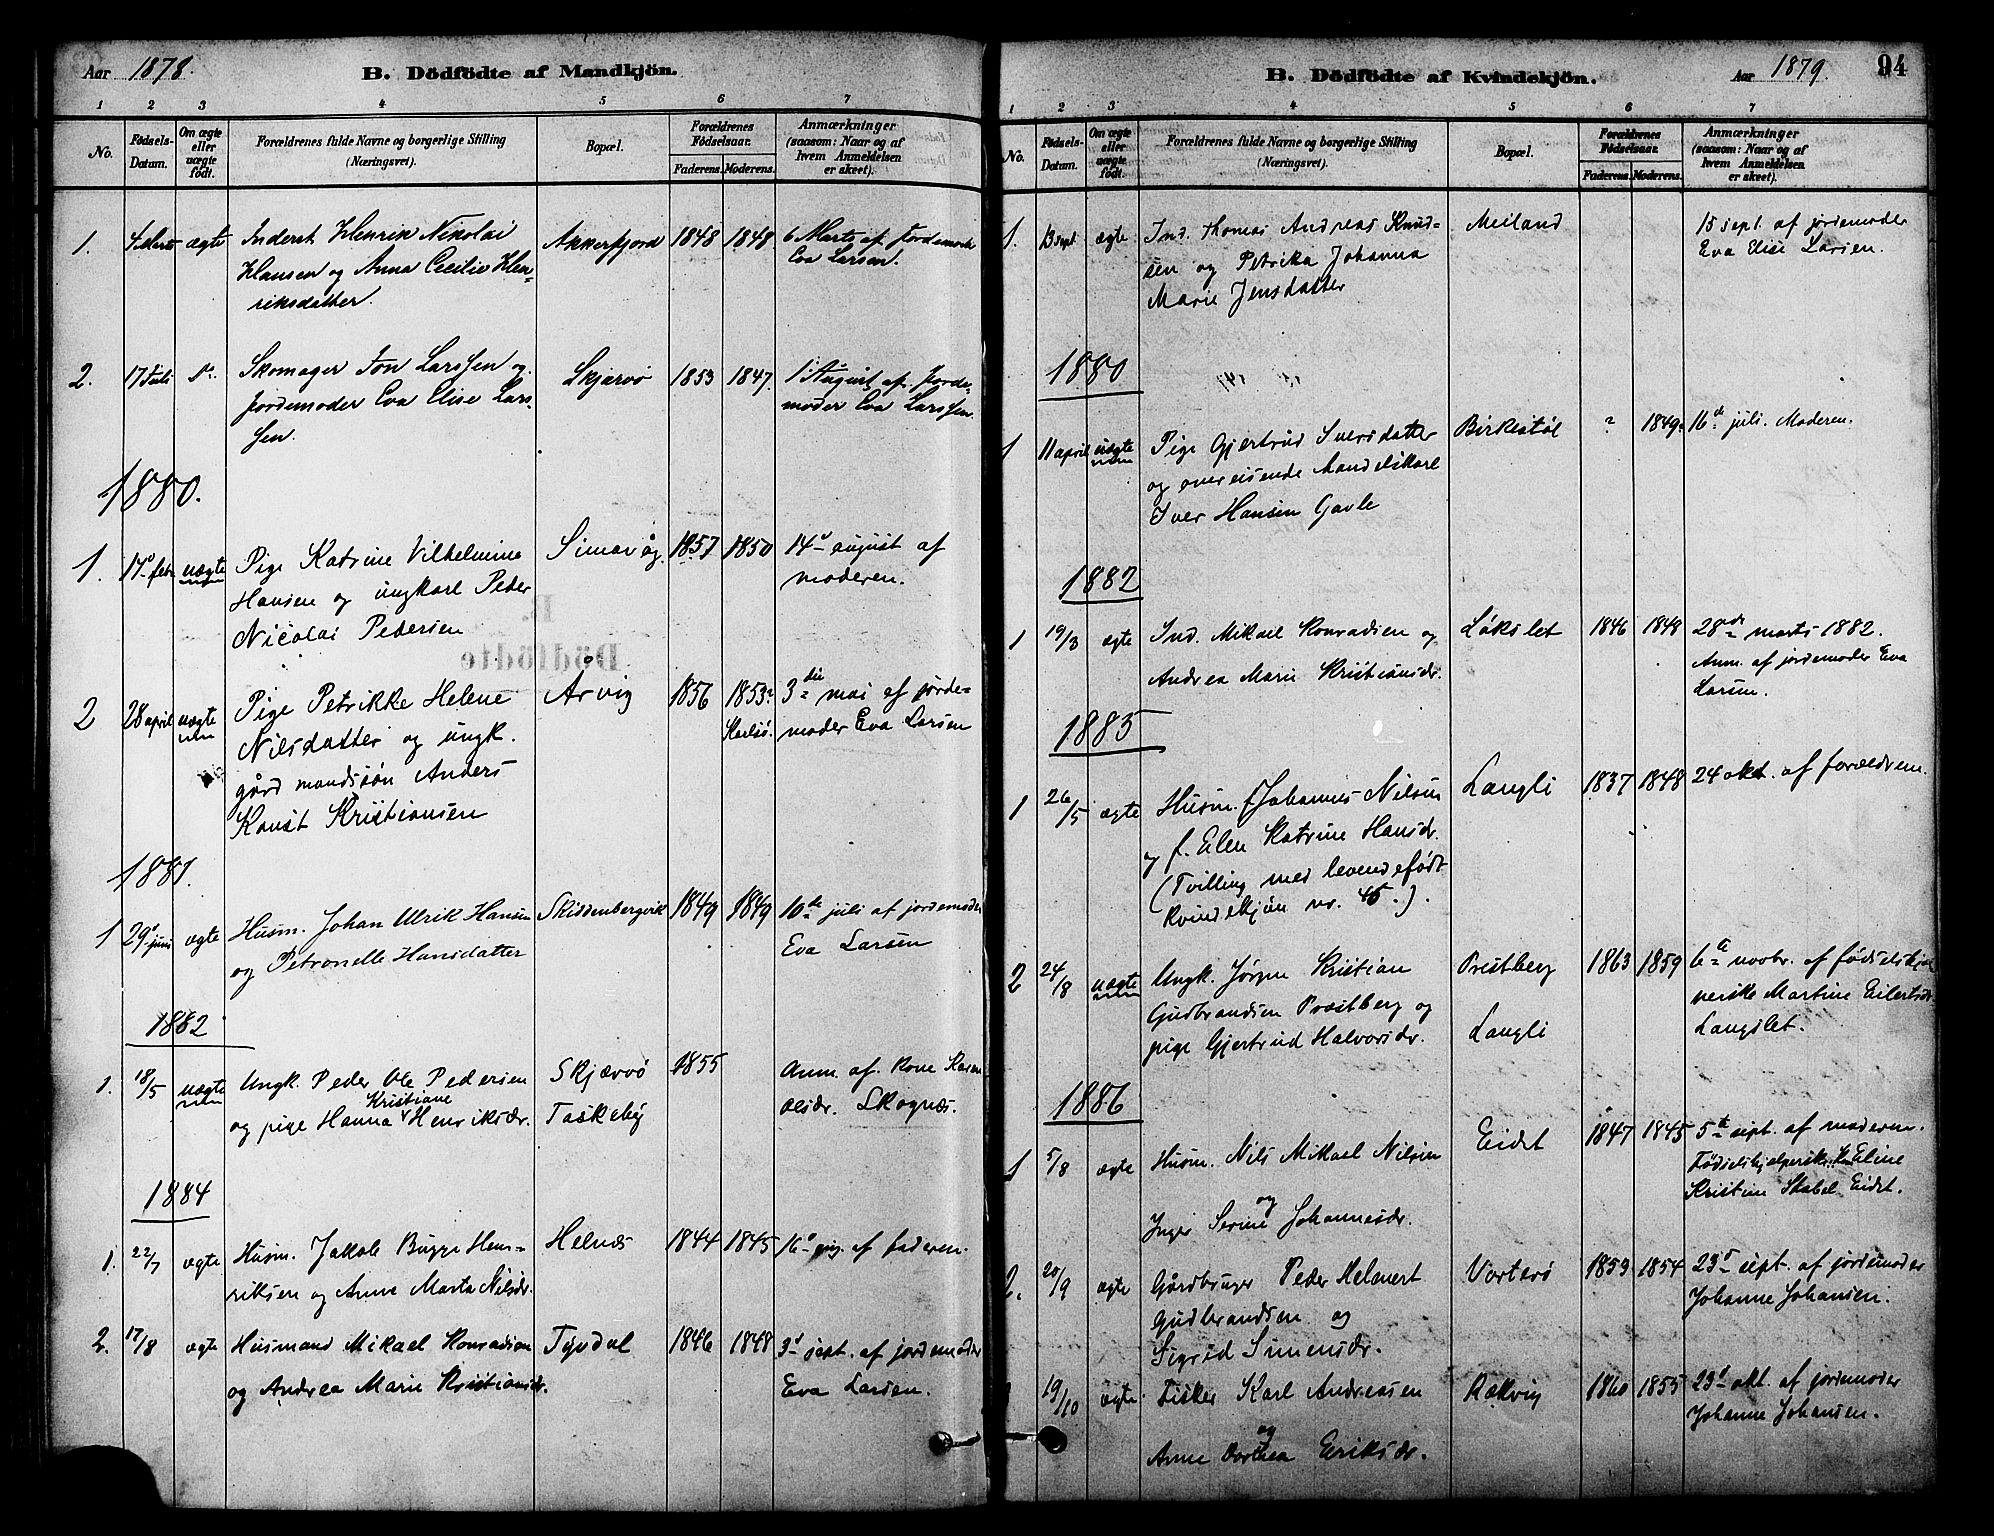 Aar 1878.
B. Dödfödte af Mandkjön.
1 2 3 4 5 6 7
No.
Födsels-Datum.
Om ægte eller uægte født.
Forældrenes fulde Navne og borgerlige Stilling (Næringsvei).
Bopæl.
Forældrenes Födselsaar.
Faderens. Moderens.
Anmærkninger (saasom: Naar og af hvem Anmeldelsen er skeet).
1. 4 Marts ægte Inderst Henrik Nikolai Akkarfjord 1848 1848 6 Marts af Jordemoder
Hansen og Anna Cecilie Hen- Eva Larsen.
riksdatter.
2. 17 Juli do. Skomager Jon Larssen og Skjærvö 1853 1847. 1 August af Jorde-
Jordemoder Eva Elise Lars- moder Eva Larssen.
sen.
1880.
1. 17de febr. uægte Pige Katrine Vilhelmine Simavåg 1857 1850 14de august af
Hansen og ungkarl Peder moderen.
Nicolai Pedersen
2 28 april uægte Pige Petrikke Helene Arvig 1856 1853 3die mai af jorde-
Nilsdatter og ungk. Karlsö. moder Eva Larsen
gård mandssön Anders
Konst Kristiansen
1881.
1 29de juni ægte Husm. Johan Ulrik Hansen Skittenbergvik 1849 1849 10de juli af jordemoder
og Petronelle Hansdatter Eva Larsen
1882
1. 18/5 uægte Ungk. Peder Ole Pedersen Skjærvö 1855 Anm. af Kone Karen
Kristiane
og pige Hanna Henriksdr. Taskeby Olsdr. Skognæs.
1884
1. 22/7 ægte Husm. Jakob Bugge Hen- Helnæs 1844 1845 16de af faderen.
riksen og Anne Marta Nilsdr.
2. 17/8 ægte Husmand Mikael Konradsen Tyvdal 1846 1848 3de sept. af jordemoder
og Andrea Marie Kristiansdr. Eva Larsen.
B. Dödfödte af Kvindekjön.
Aar 1879.
94
1 2 3 4 5 6 7
No.
Födsels-Datum.
Om ægte eller uægte födt.
Forældrenes fulde Navne og borgerlige Stilling (Næringsvei).
Bopæl.
Forældrenes Födselsaar.
Faderens. Moderens.
Anmærkninger (saasom: Naar og af hvem Anmeldelsen er skeet).
1. 13 sept. ægte Ind. Thomas Andreas Knud- Meiland 15 sept. af jordemoder
sen og Petrika Johanna Eva Elise Larsen.
Marie Jensdatter
1880
1 11 april uægte Pige Gjertrud Iversdatter Birkestöl ? 1849 16de juli. Moderen.
og overreisende handelskarl
Iver Hansen Gavle
1882
1 19/3 ægte Ind. Mikael Konradsen og Lökslet 1846 1848 28de marts 1882.
Andrea Marie Kristiansdr. Anm. af jordemoder Eva
Larsen.
1885
1 26/5 ægte Husm. f. Johannes Nilsen Langli 1837 1848 24 okt. af forældrene.
og f. Elen Katrine Hansdr.
(Tvilling med levendefödt
Kvindekjön no. 45.).
2 24/8 uægte Ungk. Jörgen Kristian Prestberg 1863 1859 6te novbr. af födselshjæl-
Gudbrandsen Præstberg og perske Martine Eilertsdr.
pige Gjertrud Halvorsdr. Langli Langslet.
1886
1 5/8 ægte Husm. Nils Mikael Nilsen Eidet 1847 1845 5te sept. af moderen.
og Födselshjelperske Eline
Inger Serine Johannesdr. Kristine Stabel Eidet.
2. 20/9 ægte Gårdbruger Peder Helmert Vorterö 1853 1854 23de sept. af jordemoder
Gudbrandsen og Johanne Johansen.
Sigrid Simensdr.
19/10 ægte Fisker Karl Andreasen Rækvig 1860 1855 23de okt. af jordemoder
og Johanne Johansen.
Anne Dorthea Eriksdr.
B.
Dödfödte